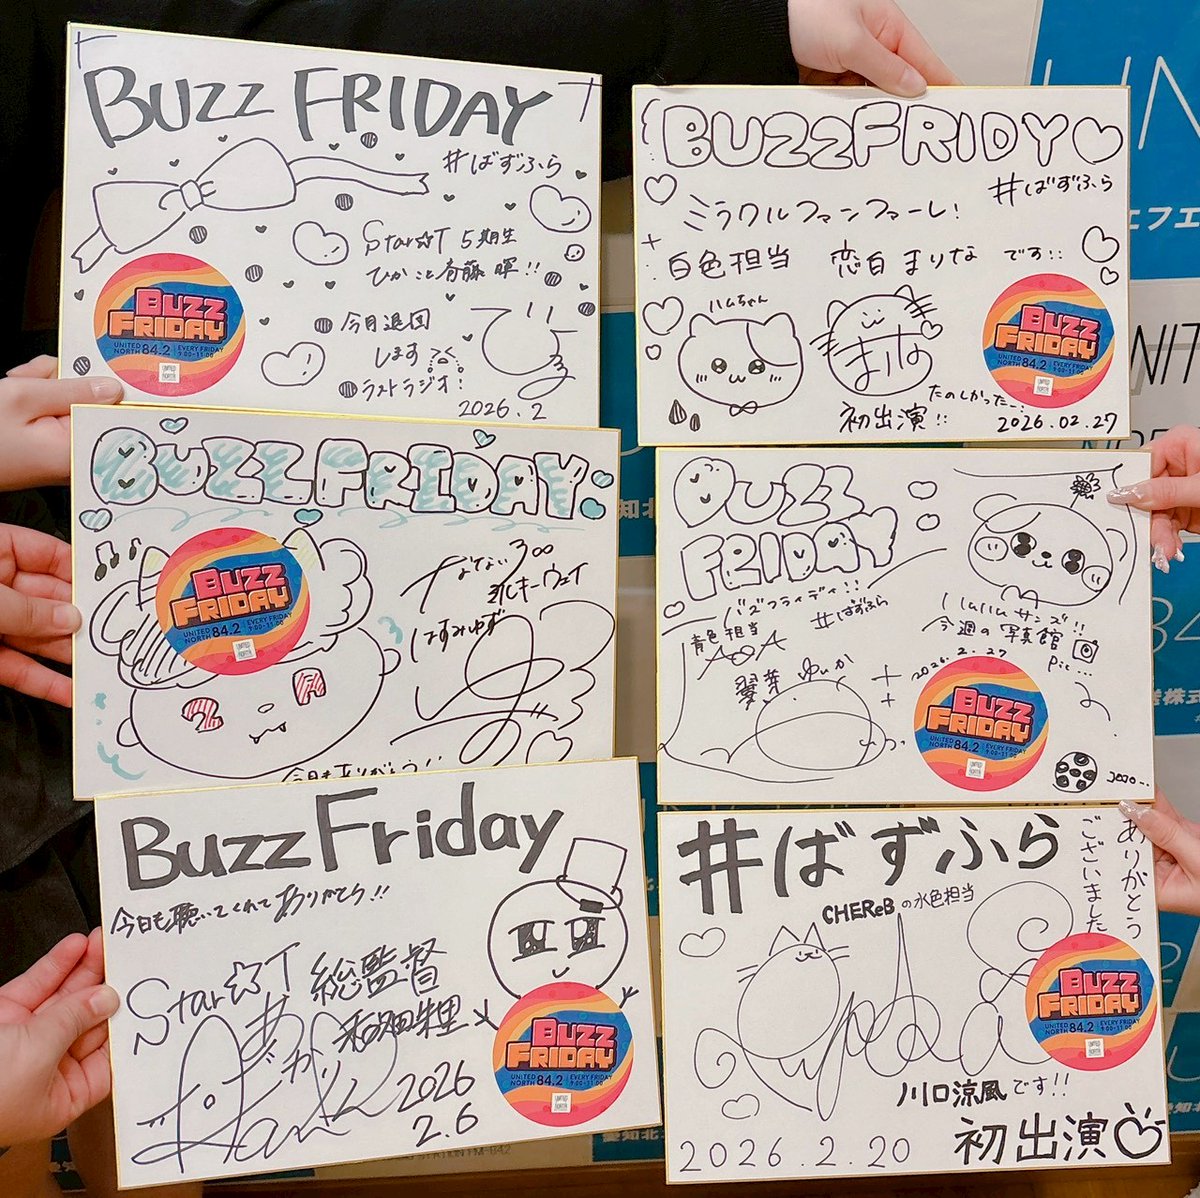 BUZZ FRIDAY
#ばずふら
Star☆T 5期生
ひかこと斉藤 暉!!
今月退団
します
ラストラジオ!
2026.2
BUZZ FRIDAY
UNITED NORTH 84.2 EVERY FRIDAY 9:00-11:00
BUZZFRIDY
#ばずふら
ミラクルファンファーレ!
白色担当 恋白 まりな です!!
ハムちゃん
まりな
たのしかったー!
初出演!!
2026.02.27
BUZZ FRIDAY
UNITED NORTH 84.2 EVERY FRIDAY 9:00-11:00
BUZZ FRIDAY
はすみゆず
今日もありがとう!!
BUZZ FRIDAY
UNITED NORTH 84.2 EVERY FRIDAY 9:00-11:00
BUZZ
FRIDAY
バズフライディ!!
#ばずふら
青色担当
AOA
翠芽 ゆいか
ハムハムサンズ!!
今週の写真館
Pic...
2026.2.27
BUZZ FRIDAY
UNITED NORTH 84.2 EVERY FRIDAY 9:00-11:00
Buzz Friday
今日も聴いてくれてありがとう!!
Star☆T 総監督
和田朱里
あ
かりん
2026
2.6
BUZZ FRIDAY
UNITED NORTH 84.2 EVERY FRIDAY 9:00-11:00
#ばずふら
ありがとう
ございました
CHEReBの水色担当
川口涼風です!!
2026.2.20
初出演
BUZZ FRIDAY
UNITED NORTH 84.2 EVERY FRIDAY 9:00-11:00